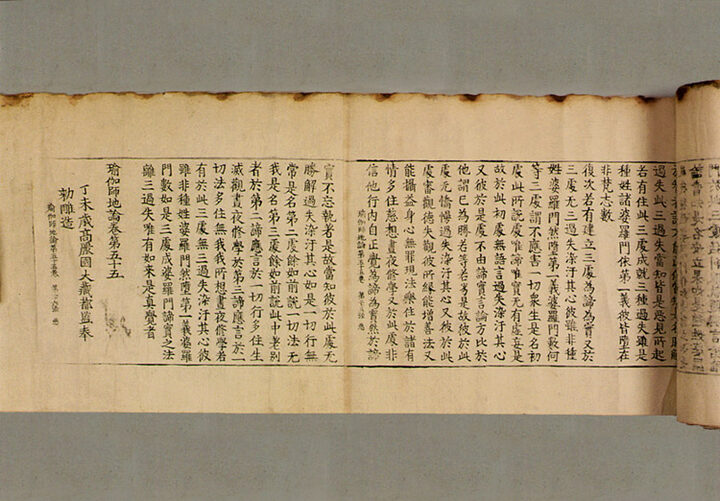 過失於此三過失當知皆是惡見所起
若有住此三處成就三種過失雖是
種姓諸婆羅門伏第一義彼皆墮在
非梵志數
復次若有建立三處為諦為實又於
三處無三過失染汙其心彼雖非種
姓婆羅門然墮第一義婆羅門數何
等三處謂不應害一切衆生是名初
處此所說處唯諦唯實無有虛妄是
故於此初處無語言過失染汙其心
又彼於是處不由諦實言論方比於
他謂已為勝若等若劣是故彼於此
處無憍慢過失染汙其心又彼於此
處審觀德失觀彼所緣能增善法又
能攝益身心無罪現法樂住於諸有
情多住慈想晝夜修學又於此處非
信他行內自正覺為諦為實然於諦
瑜伽師地論第五十五卷 第 張
實不忘執著是故當知彼於此處無
勝解過失染汙其心如是一切行無
常是名第二處餘如前說一切法無
我是名第三處餘如前說此中差別
者於第二諦應言於一切行多住生
滅觀晝夜修學於第三諦應言於一
切法多住無我我所想晝夜修學若
有於此三處無三過失染汙其心彼
雖非種姓婆羅門然墮第一義婆羅
門數如是三處成婆羅門諦實之法
離三過失唯有如來是真覺者
瑜伽師地論卷第五十五
丁未歲高麗國大藏都監奉
勅雕造
瑜伽師地論第五十五卷 第 張